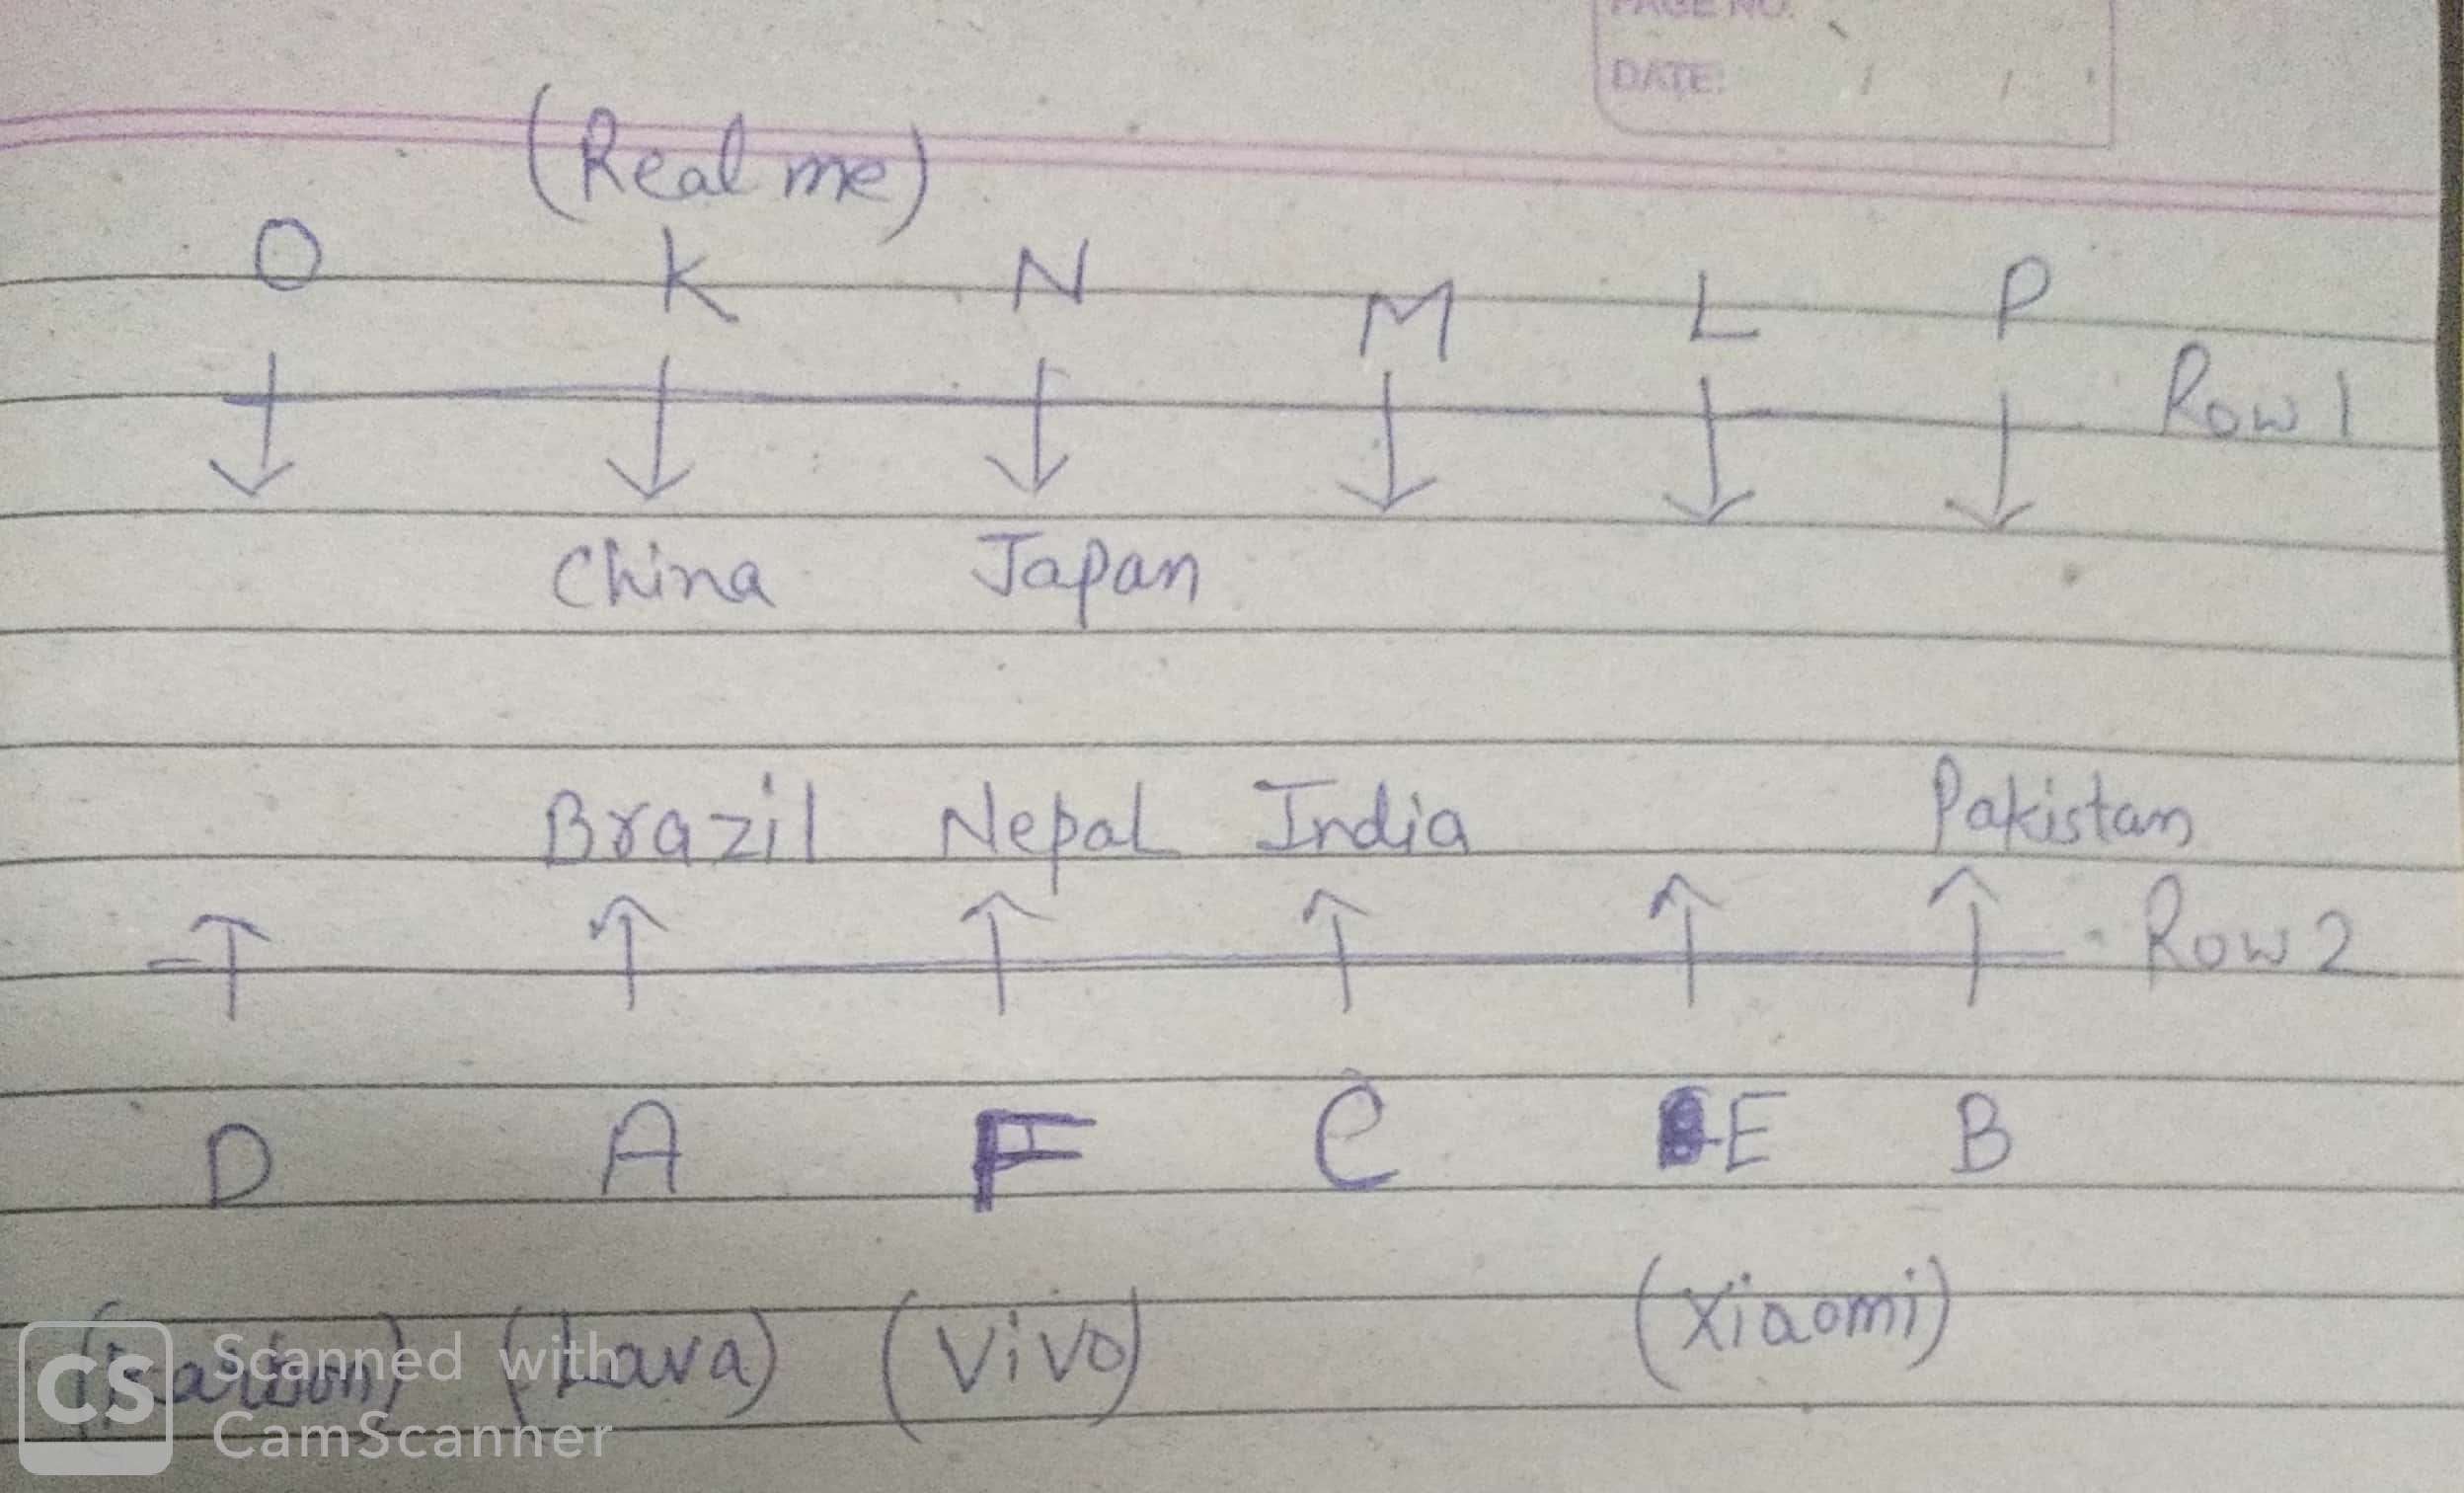 PAGE NO.
DATE: / /
(Real me)
O K N M L P
Row 1
China Japan
Brazil Nepal India Pakistan
Row 2
D A F C E B
(Karbon) (Lava) (Vivo) (Xiaomi)
CS Scanned with
CamScanner